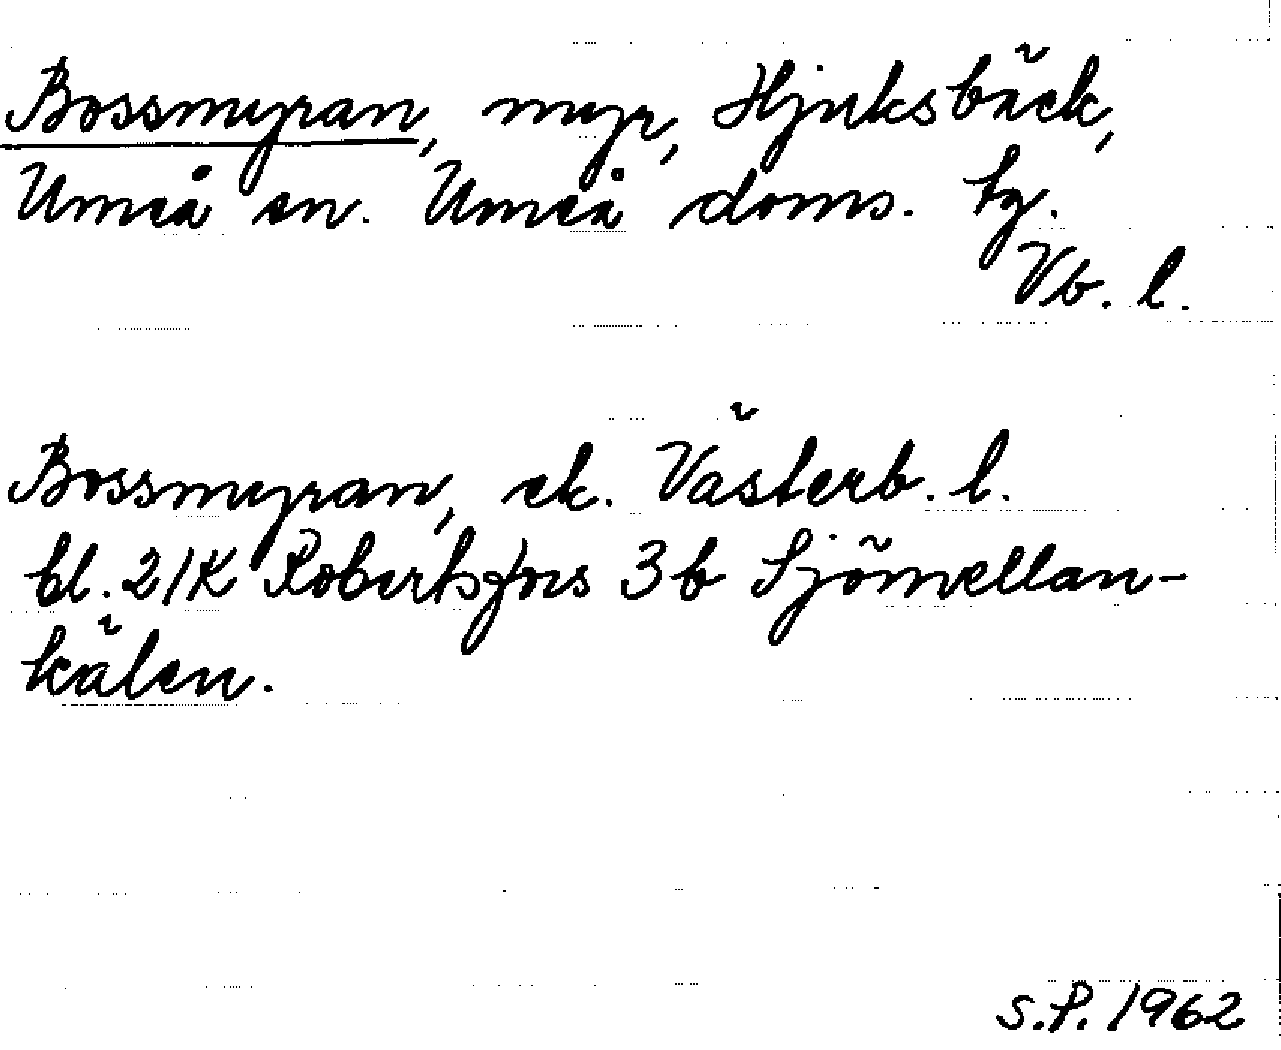 Bossmyran, myr, Hjuksbäck,
Umeå sn. Umeå doms. tg.
Vb. l.
Bossmyran, ek. Västerb. l.
bl. 21K Robertsfors 3b Sjömellan-
kälen.
S.P. 1962